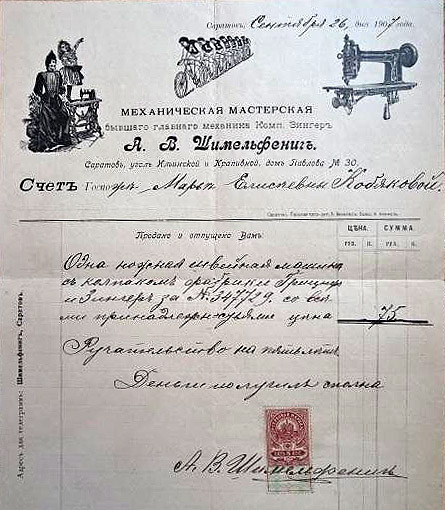 Саратовъ, Сентября 26, дня 1907 года.
МЕХАНИЧЕСКАЯ МАСТЕРСКАЯ
бывшаго главнаго механика Комп. Зингеръ
А. В. Шимельфенигъ.
Саратовъ, уголъ Ильинской и Крапивной, домъ Павлова № 30.
Счетъ Госпо жѣ Марьѣ Елисеевнѣ Кобяковой.
Продано и отпущено Вамъ:
ЦѢНА. СУММА.
РУБ. К. РУБ. К.
Одна ножная швейная машина
съ колпакомъ фабрики
Зингеръ за № 347729. со все
ми принадлежностями цѣна 75
Ручательство на пять лѣтъ.
Деньги получилъ сполна
А. В. Шимельфенигъ
Адресъ для телеграмъ: Шимельфенигъ, Саратовъ.